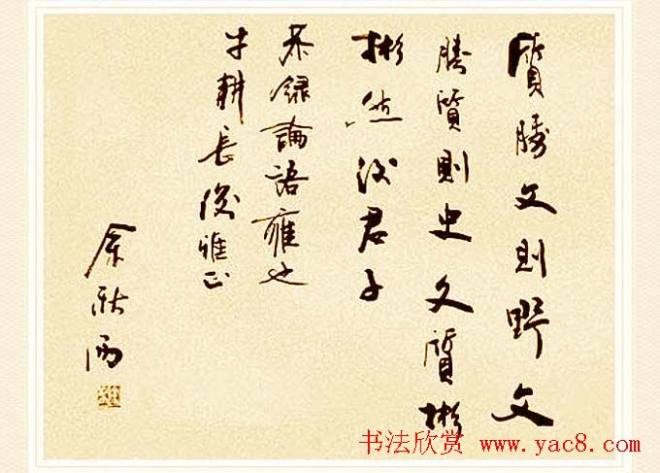 質勝文則野文
勝質則史文質彬
彬然後君子
恭録論語雍也
耕長俊雅正
余秋雨
书法欣赏 www.yac8.com